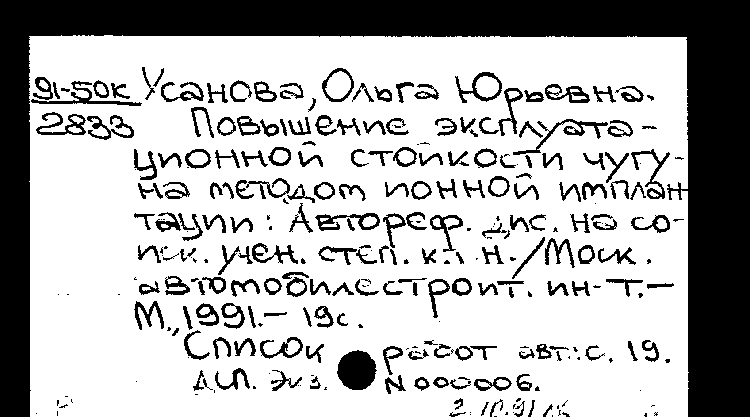 91-50к Усанова, Ольга Юрьевна.
2833 Повышение эксплуата-
ционной стойкости чугу-
на методом ионной имплан
тации: Автореф. дис. на со-
иск. учен. степ. к.т.н./Моск.
автомобилестроит. ин-т.—
М., 1991.— 19с.
Список работ авт.: с. 19.
ДСП. Экз. N 000006.
2.10.91